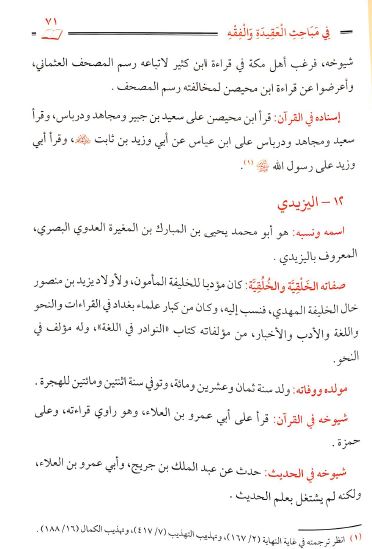 في مَبَاحِثِ الْعَقِيدَةِ وَالْفِقْهِ
٧١
شيوخه، فرغب أهل مكة في قراءة «ابن كثير لاتباعه رسم المصحف العثماني،
وأعرضوا عن قراءة ابن محيصن لمخالفته رسم المصحف .
إسناده في القرآن: قرأ ابن محيصن على سعيد بن جبير ومجاهد ودرباس، وقرأ
سعيد ومجاهد ودرباس على ابن عباس عن أبي وزيد بن ثابت ﷺ، وقرأ أبي
وزيد على رسول الله ﷺ (١).
١٢ - اليزيدي
اسمه ونسبه: هو أبو محمد يحيى بن المبارك بن المغيرة العدوي البصري،
المعروف باليزيدي .
صفاته الخَلْقِيَّة والخُلُقِيَّة: كان مؤدبا للخليفة المأمون، ولأولاد يزيد بن منصور
خال الخليفة المهدي، فنسب إليه، وكان من كبار علماء بغداد في القراءات والنحو
واللغة والأدب والأخبار، من مؤلفاته كتاب «النوادر في اللغة»، وله مؤلف في
النحو.
مولده ووفاته: ولد سنة ثمان وعشرين ومائة، وتوفي سنة اثنتين ومائتين للهجرة .
شيوخه في القرآن: قرأ على أبي عمرو بن العلاء، وهو راوي قراءته، وعلى
حمزة .
شيوخه في الحديث: حدث عن عبد الملك بن جريج، وأبي عمرو بن العلاء،
ولكنه لم يشتغل بعلم الحديث .
(١) انظر ترجمته في غاية النهاية (٢/ ١٦٧)، وتهذيب التهذيب (٧/ ٤١٧)، وتهذيب الكمال (١٦/ ١٨٨) .